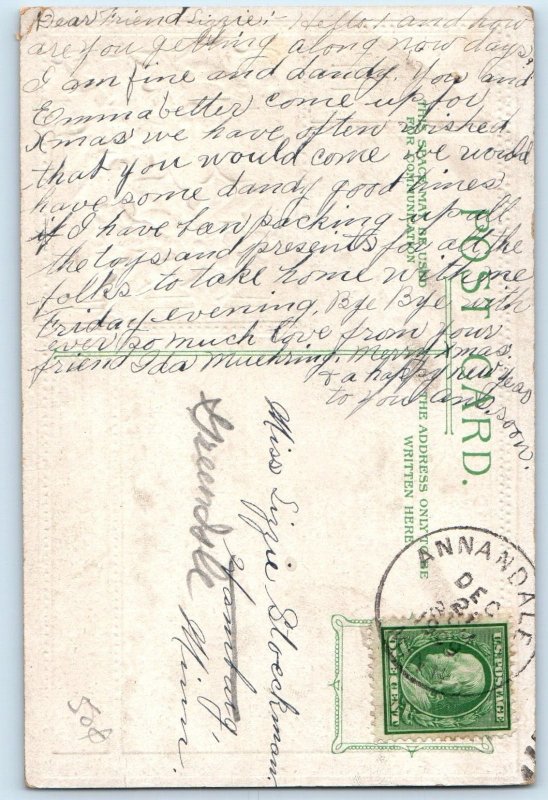 Dear Friend Lizzie:- Hello! and how
are you getting along now days?
I am fine and dandy. You and
Emma better come up for
Xmas we have often wished
that you would come we would
have some dandy good times
I have ban packing up all
the toys and presents for all the
folks to take home with me
Friday evening. Bye Bye with
ever so much love from your
frien Ida Muehring. Merry Xmas.
& a happy new year
to you
soon.
POST CARD.
THIS SPACE MAY BE USED
FOR COMMUNICATION
THE ADDRESS ONLY TO BE
WRITTEN HERE
Miss Lizzie Stockman,
Hamburg,
Minn.
ANNANDALE
DEC
U.S. POSTAGE
ONE CENT
508